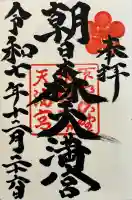 奉拝
朝日森天満宮
天満宮
令和七年十二月二十六日